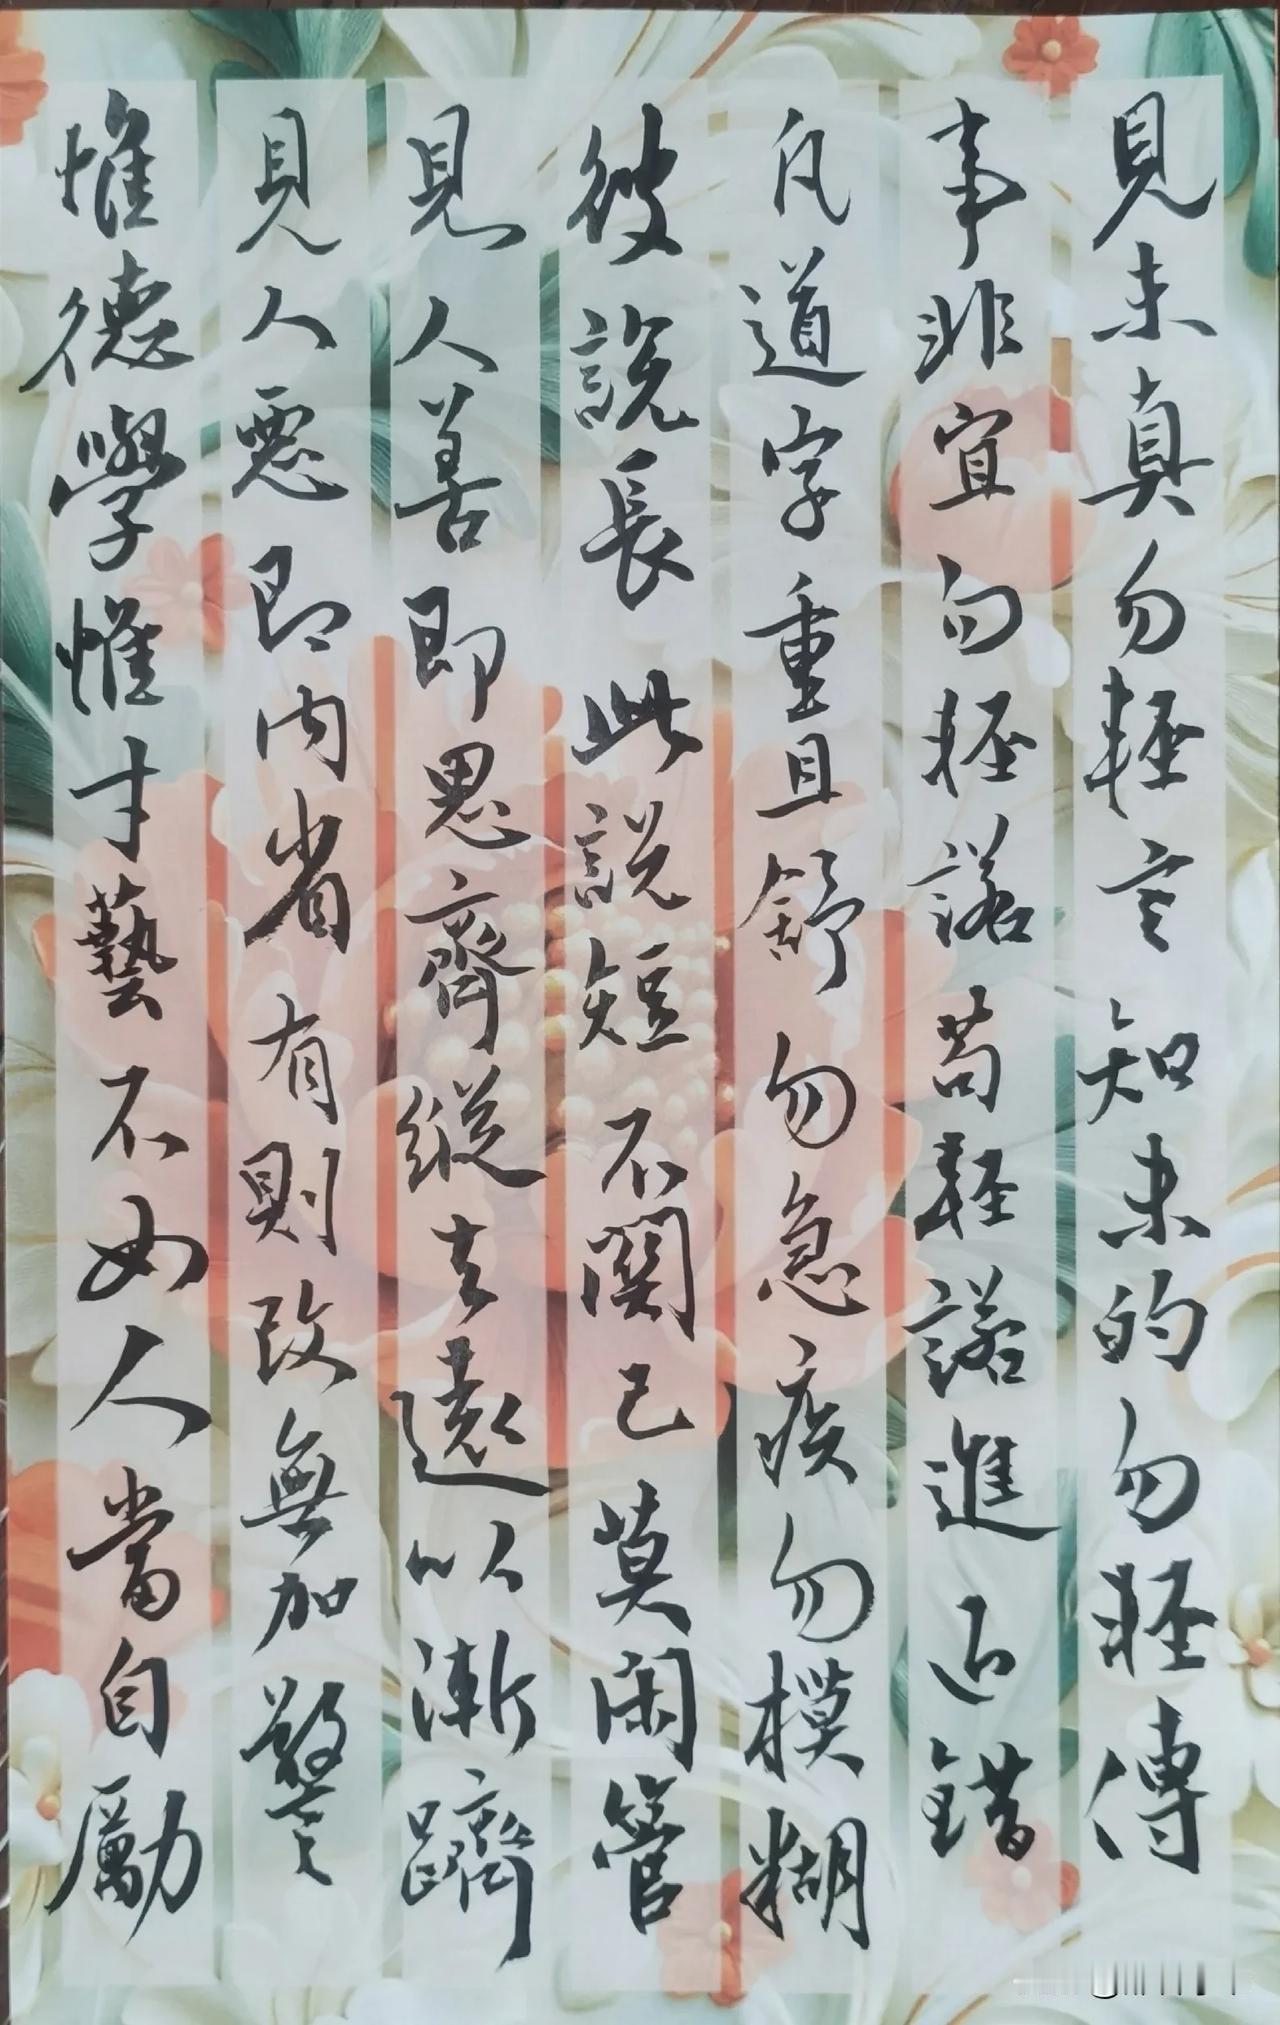 見未真勿輕言知未的勿輕傳
事非宜勿輕諾苟輕諾進退錯
凡道字重且舒勿急疾勿模糊
彼說長此說短不關己莫閑管
見人善即思齊縱去遠以漸躋
見人惡即內省有則改無加警
惟德學惟才藝不如人當自勵